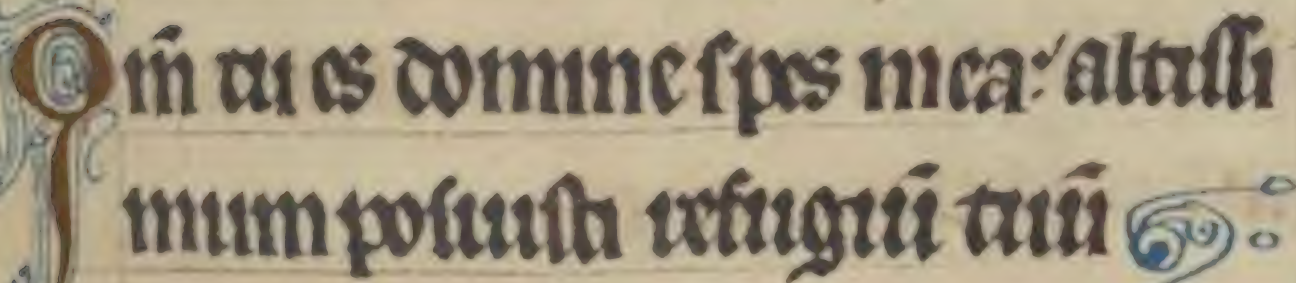 Qm̄ tu es domine spes mea: altissi
mum posuisti refugiū tuū